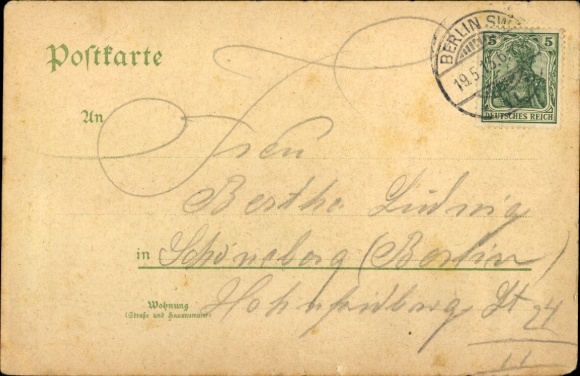 Postkarte
BERLIN SW
19.5.
5 5
DEUTSCHES REICH
An
Frau
Bertha Ludwig
in Schöneberg (Berlin)
Wohnung
(Straße und Hausnummer)
St 24
II